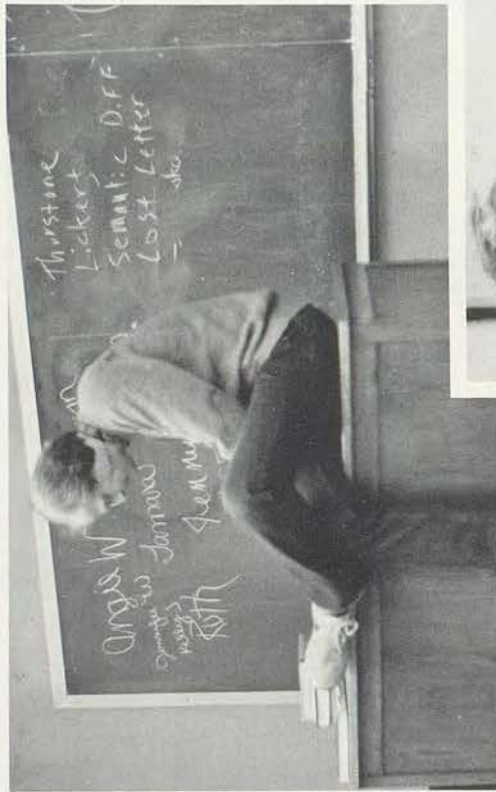 Angie W
Jennifer W
Tamara
Ruth
Thurstone
Lickert
Semantic Diff
Lost Letter